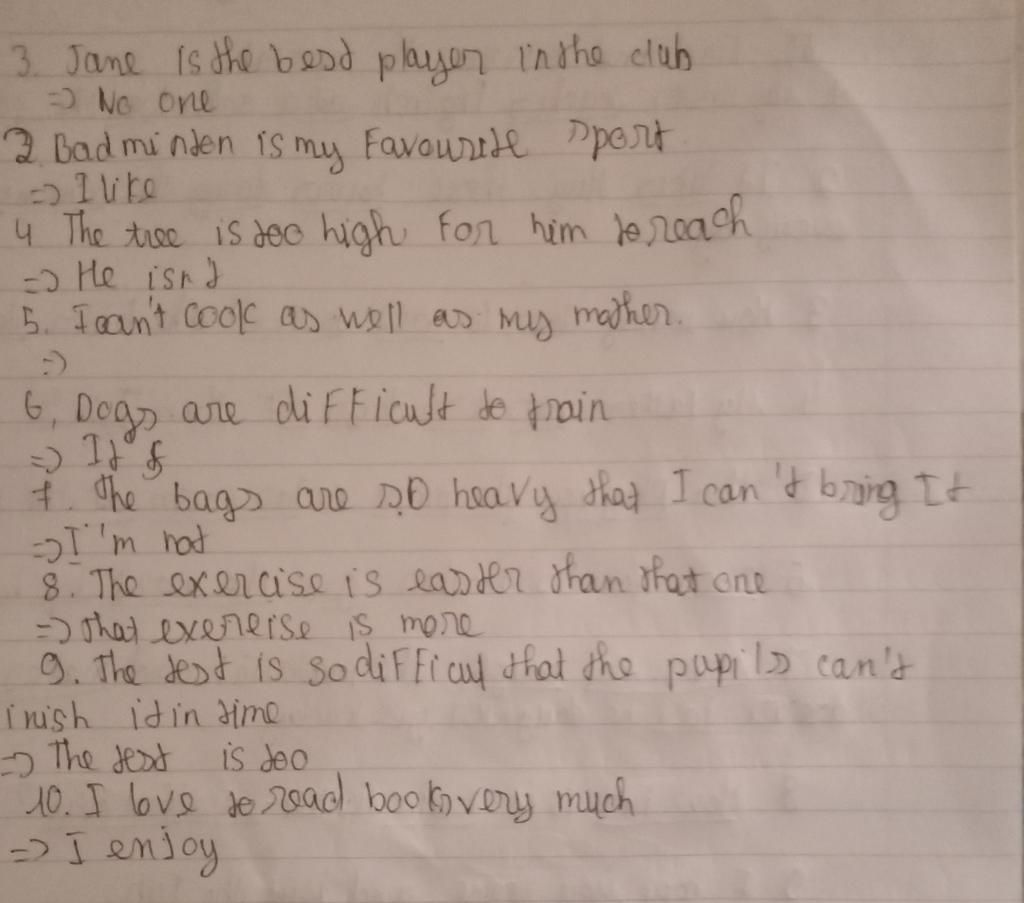 3. Jane is the best player in the club
=> No one
2 Badminten is my Favourite sport
=> I like
4 The tree is too high for him to reach
=> He isn't
5. I can't cook as well as my mother.
=>
6, Dogs are difficult to train
=> It's
7. The bags are so heavy that I can't bring It
=> I'm not
8. The exercise is easier than that one
=> that exereise is more
9. The test is so difficut that the pupils can't
inish it in time
=> The test is too
10. I love to read books very much
=> I enjoy